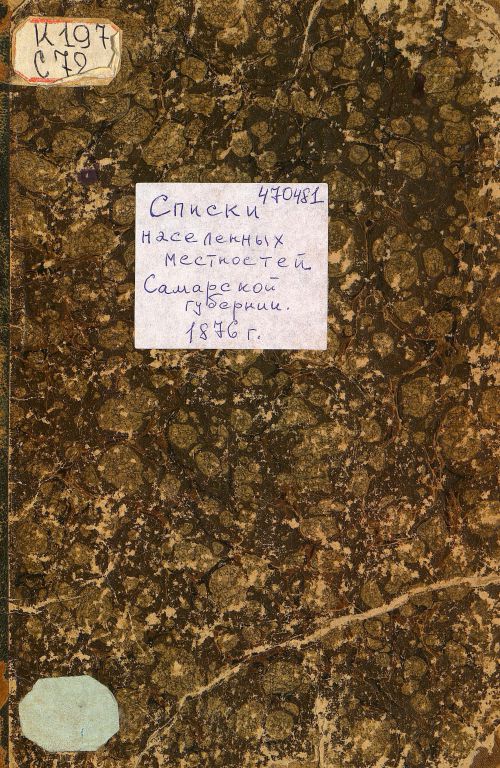 К197
С72
470481
Списки
населенных
местностей
Самарской
губернии.
1876 г.